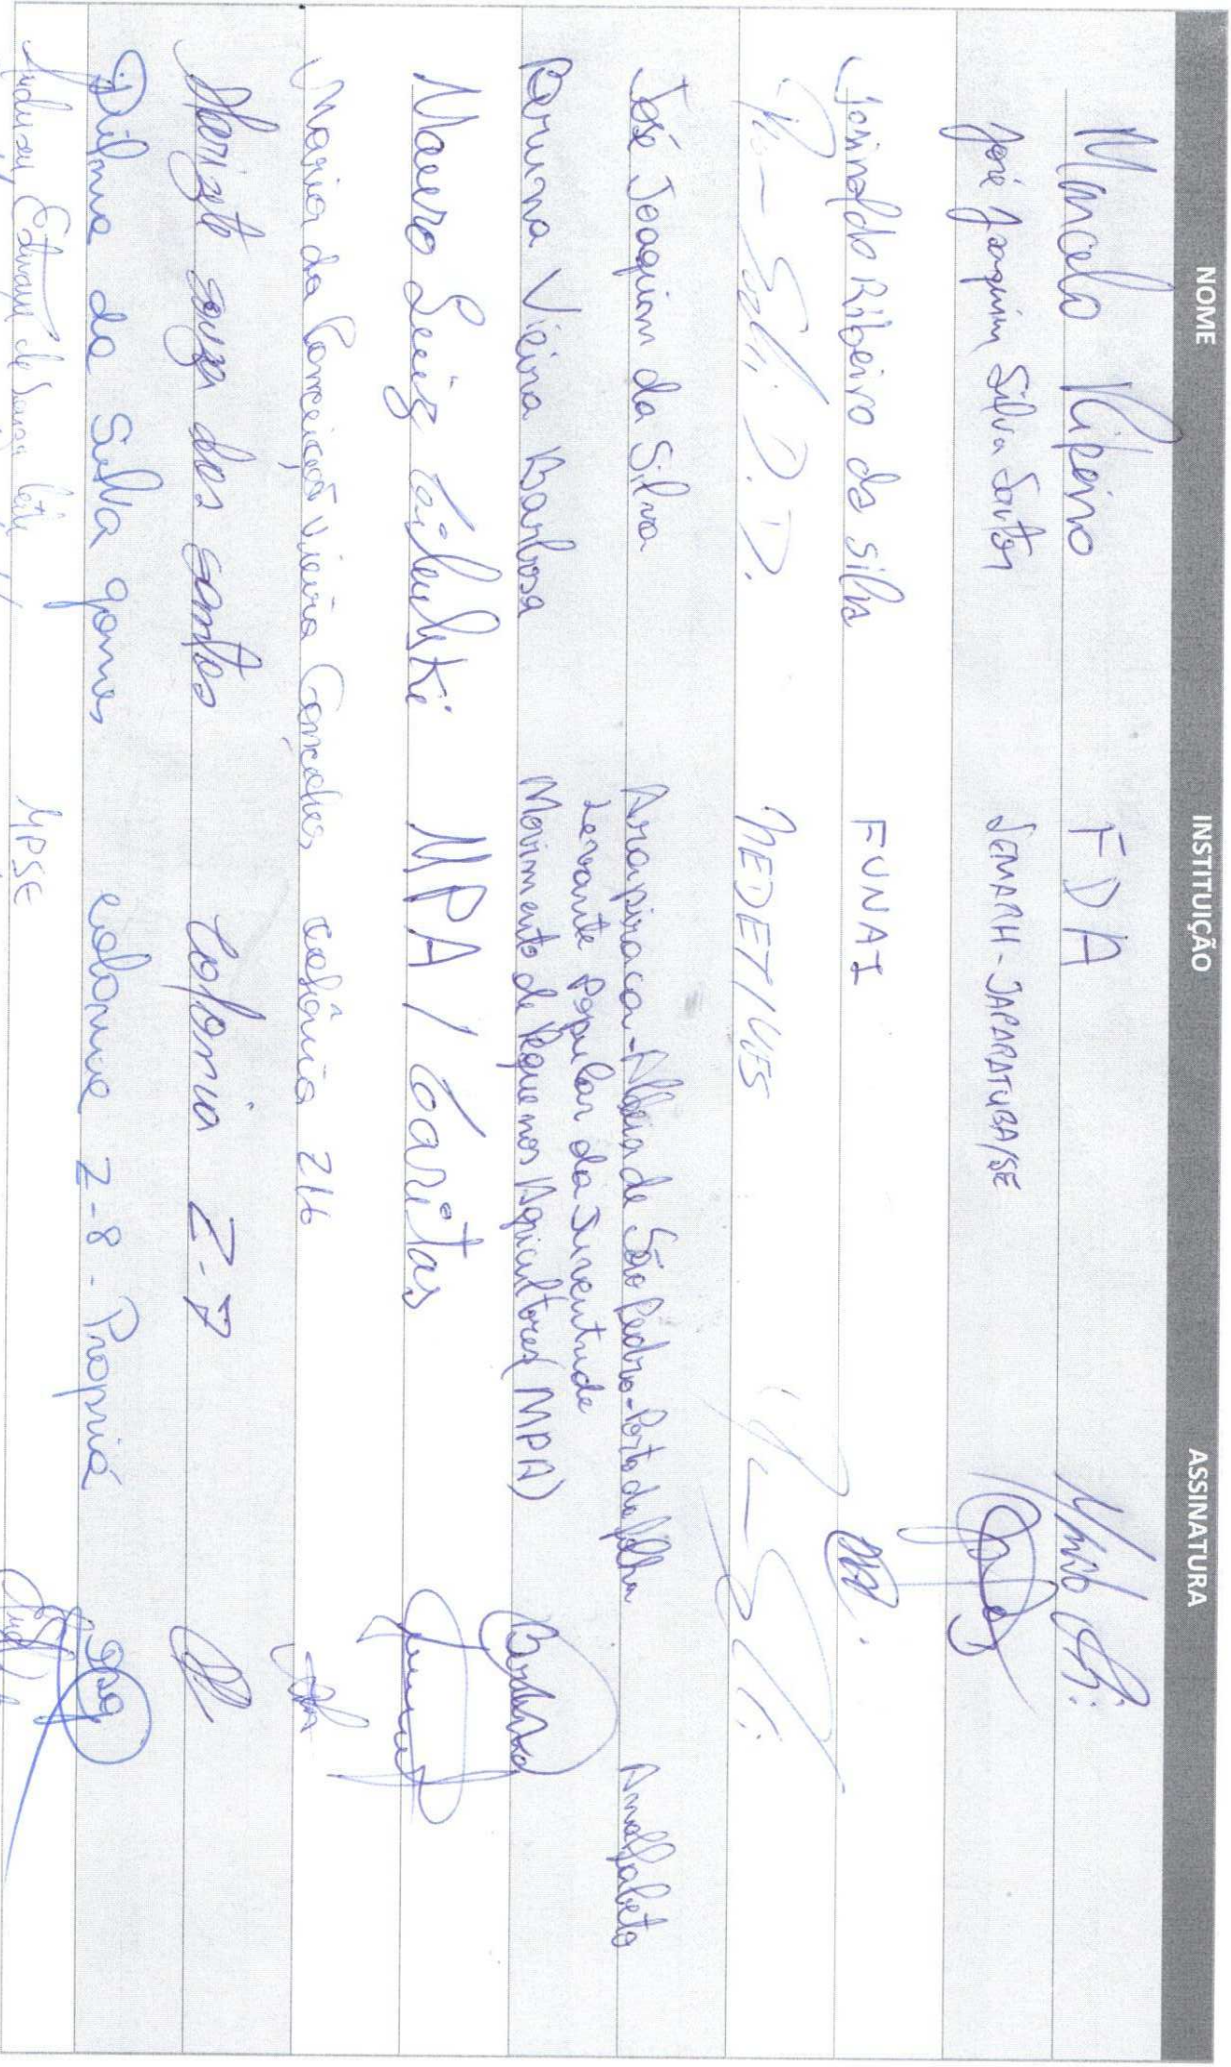 NOME INSTITUIÇÃO ASSINATURA
Marcelo Ribeiro FDA
José Joaquim Silva Santos SEMARH-JAPARATUBA/SE
Josinaldo Ribeiro da Silva FUNAI
D.
José Joaquim da Silva Arapiraca-Aldeia de São Pedro-Porto da folha Analfabeto
Levante Popular da Juventude
Bruna Vieira Barbosa Movimento de Pequenos Agricultores (MPA)
Mauro Luiz Cibulski MPA / Cáritas
Maria da Conceição Vieira Gonçalves colônia Z16
Marizete souza dos santos Colonia Z-7
Dilma da Silva gomes colonia Z-8 - Propriá
de Souza MPSE